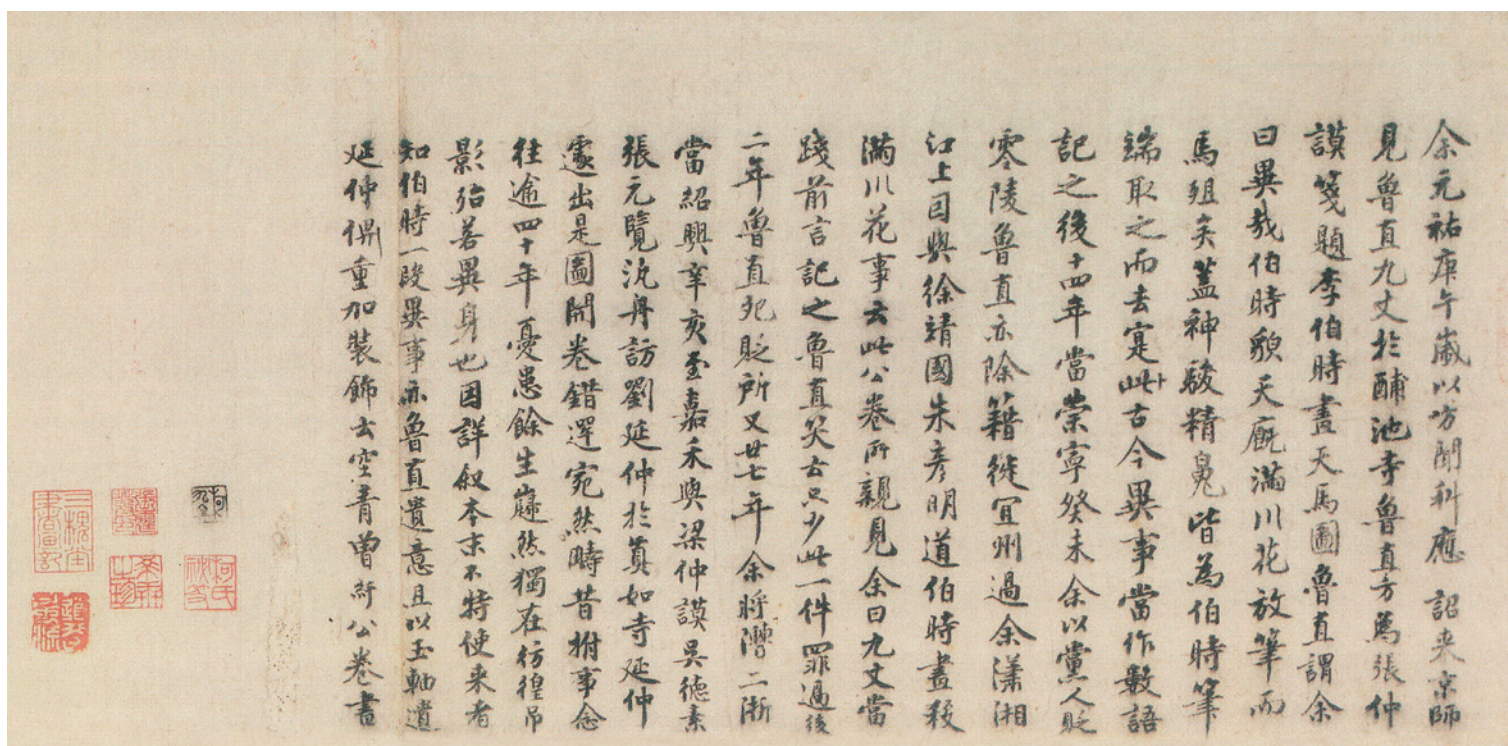 余元祐庚午歲以方聞科應 詔來京師
見魯直九丈於酺池寺魯直方為張仲
謨箋題李伯時畫天馬圖魯直謂余
曰異哉伯時貌天廐滿川花放筆而
馬殂矣蓋神駿精魄皆為伯時筆
端取之而去寔此古今異事當作數語
記之後十四年當崇寧癸未余以黨人貶
零陵魯直亦除籍徙宜州過余瀟湘
江上因與徐靖國朱彥明道伯時畫殺
滿川花事云此公卷所親見余曰九丈當
踐前言記之魯直笑云只少此一件罪過後
二年魯直死貶所又廿七年余將漕二淛
當紹興辛亥至嘉禾與梁仲謨吳德素
張元覽汎舟訪劉延仲於真如寺延仲
遽出是圖開卷錯遻宛然疇昔拊事念
往逾四十年憂患餘生巋然獨在彷徨弔
影殆若異身也因詳敘本末不特使來者
知伯時一段異事亦魯直遺意且以玉軸遺
延仲俾重加裝飾云空青曾紆公卷書
柯氏